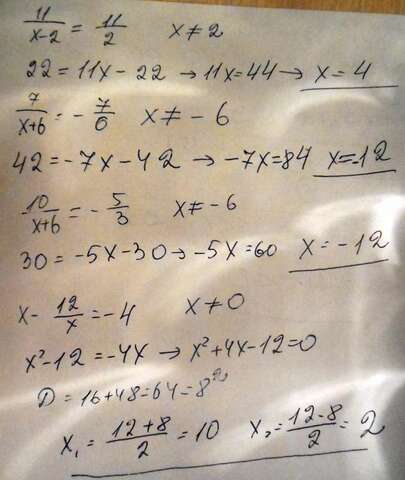 11/(x-2) = 11/2   x ≠ 2
22 = 11x - 22 → 11x = 44 → x = 4
7/(x+6) = - 7/6   x ≠ - 6
42 = -7x - 42 → -7x = 84   x = -12
10/(x+6) = - 5/3   x ≠ -6
30 = -5x - 30 → -5x = 60   x = -12
x - 12/x = -4   x ≠ 0
x² - 12 = -4x → x² + 4x - 12 = 0
D = 16 + 48 = 64 = 8²
x₁ = (12 + 8)/2 = 10   x₂ = (12 - 8)/2 = 2